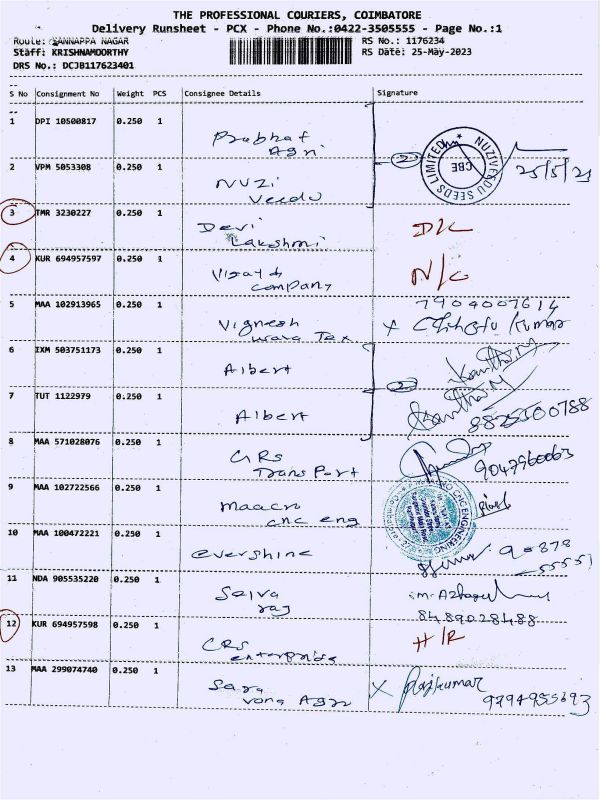 THE PROFESSIONAL COURIERS, COIMBATORE
Delivery Runsheet - PCX - Phone No.:0422-3505555 - Page No.:1
Route: SANNAPPA NAGAR RS No.: 1176234
Staff: KRISHNAMOORTHY RS Date: 25-May-2023
DRS No.: DCJB117623401
S No Consignment No Weight PCS Consignee Details Signature
1 DPI 10500817 0.250 1 Prabhat
Agri
2 NUZIVEEDU SEEDS LIMITED CBE 25/5/23
2 VPM 5053308 0.250 1 NUZI
Veedu
3 TMR 3230227 0.250 1 Devi D/L
Lakshmi
4 KUR 694957597 0.250 1 N/C
company
7904007614
5 MAA 102913965 0.250 1 Vignesh X Kumar
Tex
6 IXM 503751173 0.250 1 Albert
2
7 TUT 1122979 0.250 1 Albert
8825500788
8 MAA 571028076 0.250 1 GRS
Trans Port 9047960063
9 MAA 102722566 0.250 1 maacro CNC ENGINEERING
cnc eng
10 MAA 100472221 0.250 1 evershine 90878
55551
11 NDA 905535220 0.250 1 Selva
raj 8489028488
12 KUR 694957598 0.250 1 H/R
enterprise
13 MAA 299074740 0.250 1 Sara X Rajkumar
vana Agro 9794955693